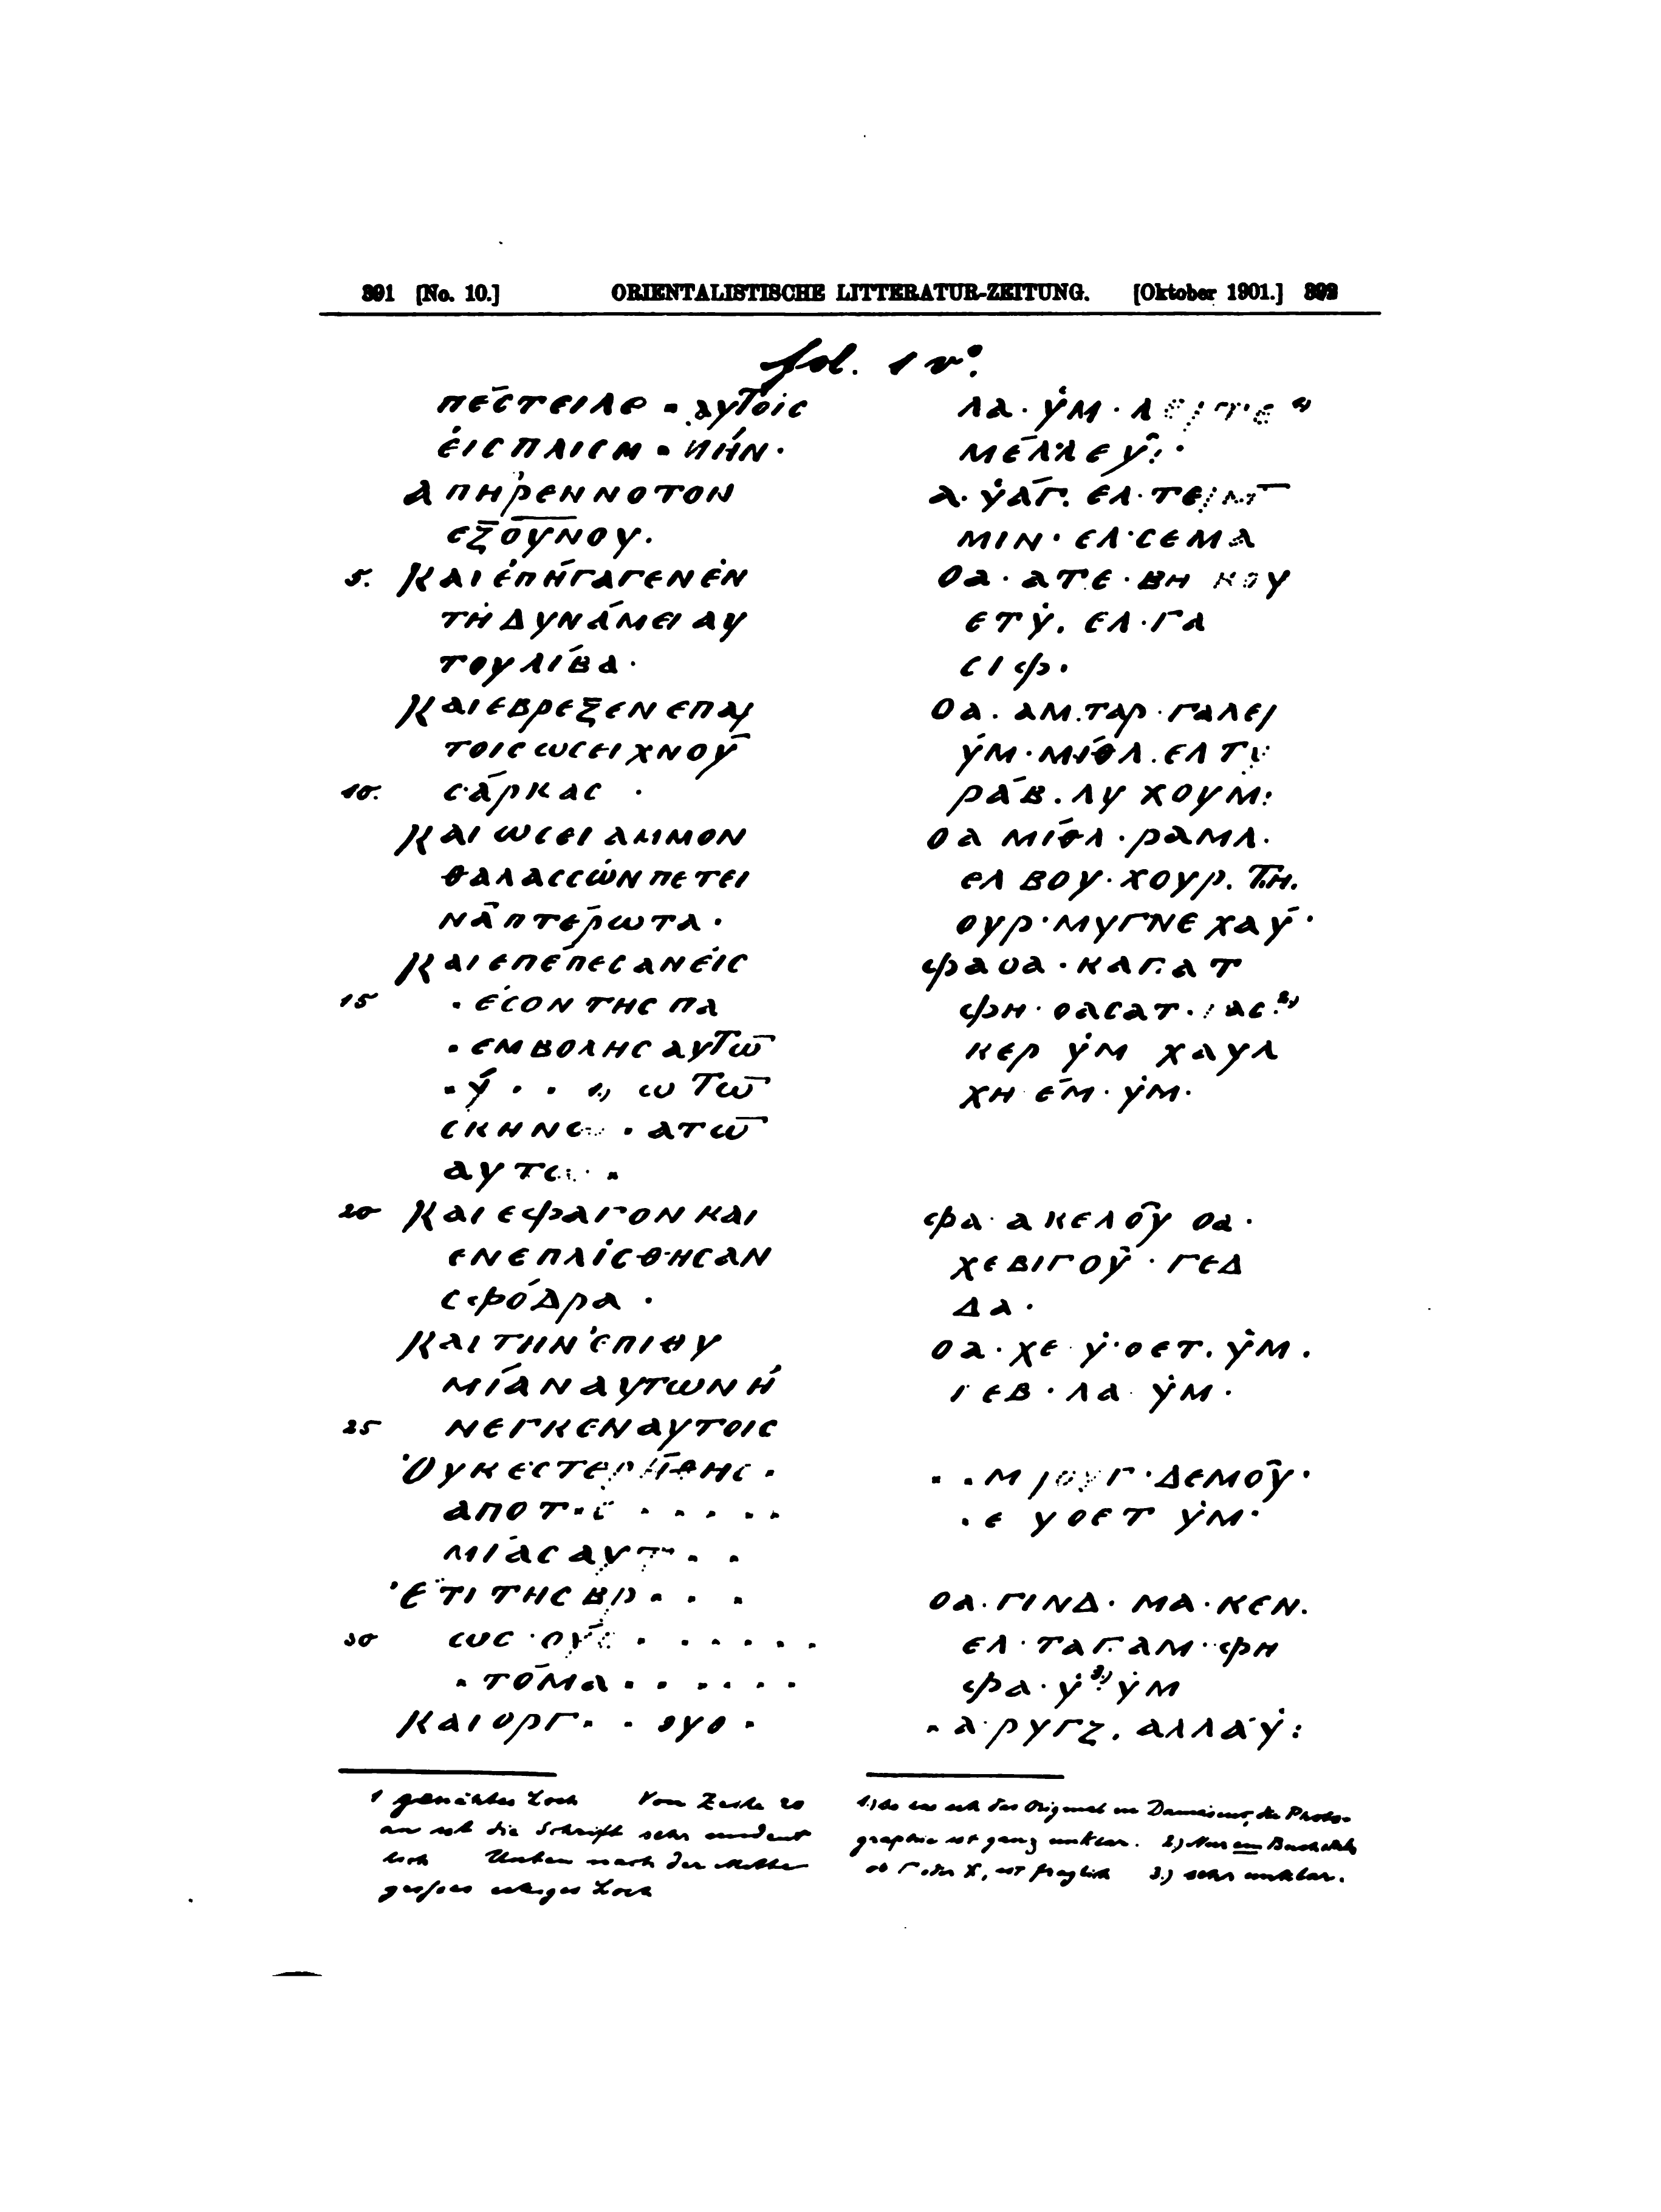 391 [No. 10.] ORIENTALISTISCHE LITTERATUR-ZEITUNG. [Oktober 1901.] 392
fol. 1 vº.
πέστειλε · αυτοίς
έισ πλισμ · νήν ·
απήρεν νοτον
εξουνου.
5. Και επήγαγεν έν
τη δυνάμει αυ
του λίβα ·
Και εβρεξεν επ αυ
τοις ωσει χνού
10. σάρκας ·
Και ωσει αμμον
θαλασσών πετει
νά πτέρωτα ·
Και επέπεσαν είς
15 · έσον της πα
· εμβολης αυτω̄
· ύ · · 1) ω τω̄
σκηνω · ατω̄
αυτω ·
20 Και εφαγον και
ενεπλίσθησαν
σφόδρα ·
Και την έπιθυ
μίαν αυτων ή
25 νεγκεν αυτοις
Ὀυκ εστερήθησ ·
απο τ · σ · · · · ·
μίας αυτ · ·
Ἐτι της βρ · · ·
30 ωσ ουσ · · · · · ·
· τόμα · · · · · ·
Και οργ · · ουθ ·
λα · ὐμ · λειτε 1)
μελλεύ : ·
α · ὐαγ. ελ · τειμ
μιν · ελ · σεμα
οα · ατε · βη κου
ετὐ. ελ · γα
σιφ ·
οα. αμ.ταρ · γαλει
ὐμ · μιθλ. ελ τυ
ράβ. λυ χουμ:
οα μιθλ · ραμλ.
ελ βου · χουρ. τ.η.
ουρ · μυγνε χαύ ·
φαυα · καγ.ατ
φη · οασατ · ας. 2)
κερ ὐμ χαυλ
χη εμ · ὐμ ·
φα · ακελού οα ·
χεβιγού · γεδ
δα ·
οα · χε ὐ · οετ. ὐμ.
γεβ · λα ὐμ ·
· · μ ιουγ · δεμού ·
· ε υοετ ὐμ ·
οα. γινδ · μα · κεν.
ελ · ταγ.αμ · φη
φα · ὐ 3) ὐμ
· α · ρυγζ. αλλαὐ :
1 genähtes Loch Von Zeile 20
an ist die Schrift sehr undeut
lich Unten nach der Mitte
grosses eckiges Loch
1.) So las ich das Original in Damascus, die Photo-
graphie ist ganz unklar. 2.) Nur ein Buchstabe
ob Γ oder Χ, ist fraglich 3.) sehr unklar.